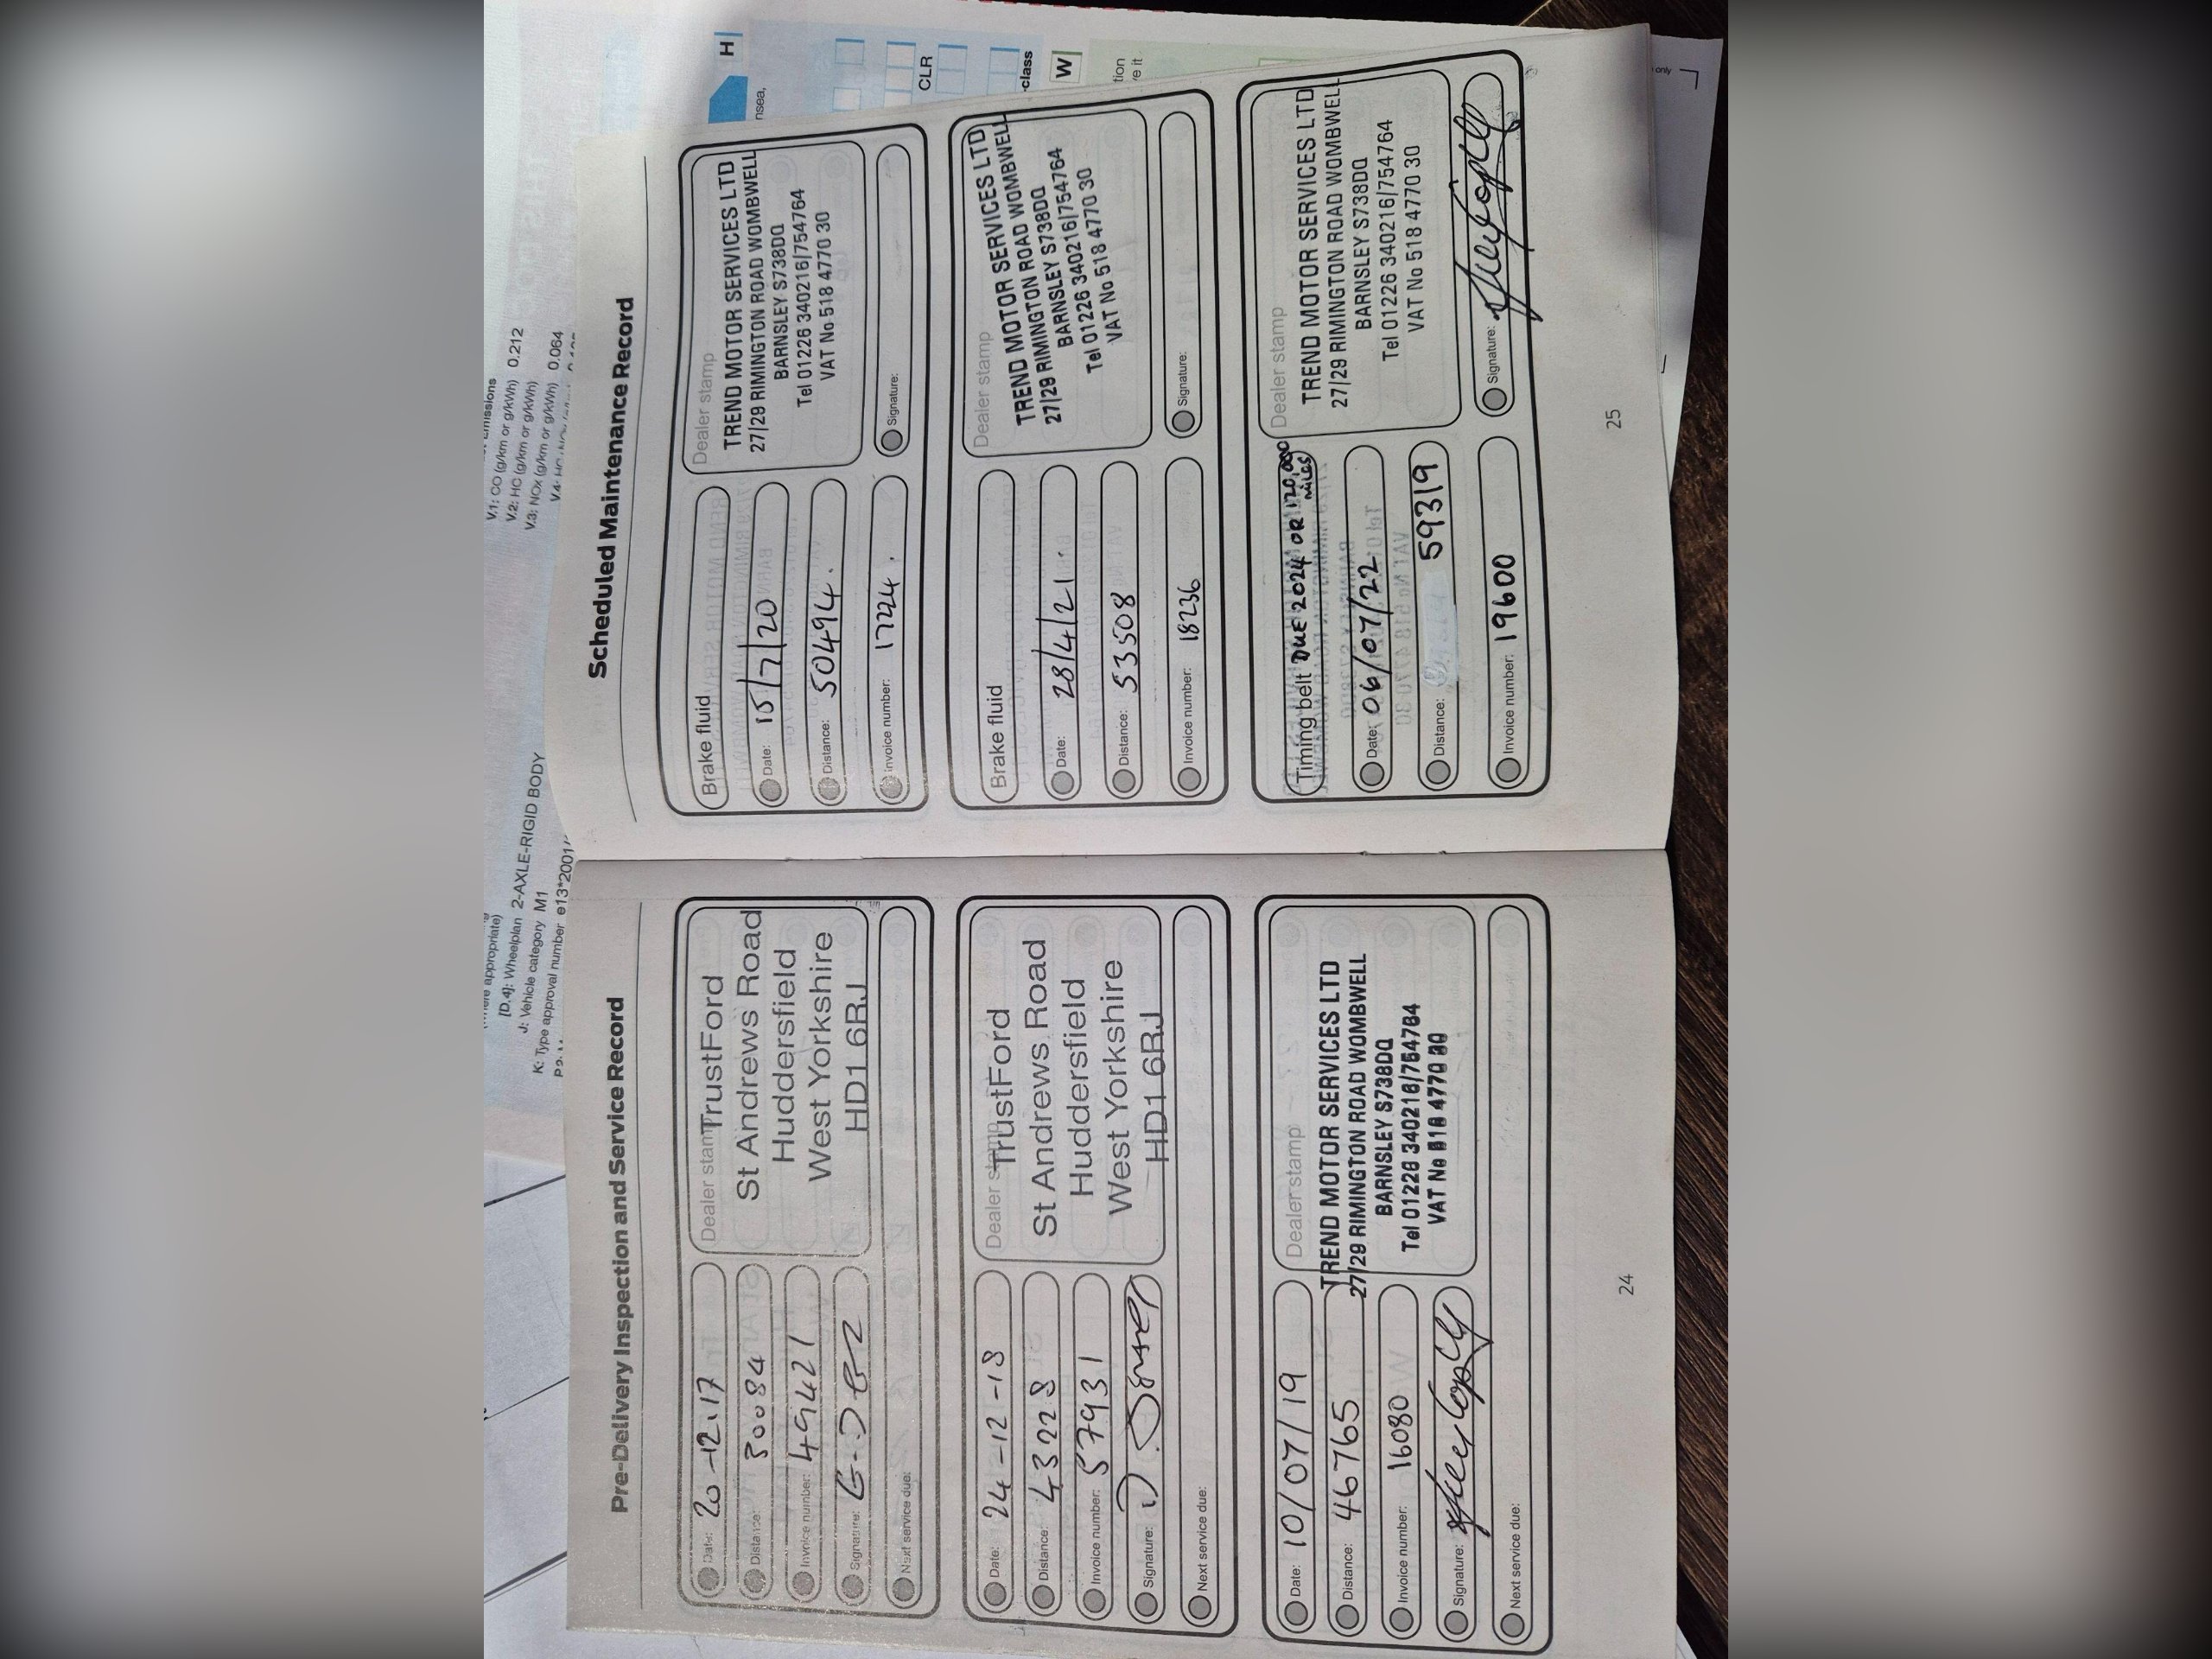 V.1: CO (g/km or g/kWh) 0.212
V.2: HC (g/km or g/kWh)
V.3: NOx (g/km or g/kWh) 0.064
[D.4]: Wheelplan 2-AXLE-RIGID BODY
J: Vehicle category M1
K: Type approval number e13*2001/
appropriate)
H
nsea,
CLR
-class
W
tion
e it
only
Pre-Delivery Inspection and Service Record
Date: 20-12.17
Distance: 30084
Invoice number: 49421
Signature:
Next service due:
Dealer stamp
TrustFord
St Andrews Road
Huddersfield
West Yorkshire
HD1 6RJ
Date: 24-12-18
Distance: 43228
Invoice number: 57931
Signature:
Next service due:
Dealer stamp
TrustFord
St Andrews Road
Huddersfield
West Yorkshire
HD1 6RJ
Date: 10/07/19
Distance: 46765
Invoice number: 16080
Signature:
Next service due:
Dealer stamp
TREND MOTOR SERVICES LTD
27/29 RIMINGTON ROAD WOMBWELL
BARNSLEY S738DQ
Tel 01226 340216/754764
VAT No 518 4770 30
24
Scheduled Maintenance Record
Brake fluid
Date: 15/7/20
Distance: 50494.
Invoice number: 17224.
Dealer stamp
TREND MOTOR SERVICES LTD
27/29 RIMINGTON ROAD WOMBWELL
BARNSLEY S738DQ
Tel 01226 340216/754764
VAT No 518 4770 30
Signature:
Brake fluid
Date: 28/4/21.
Distance: 53508
Invoice number: 18236
Dealer stamp
TREND MOTOR SERVICES LTD
27/29 RIMINGTON ROAD WOMBWELL
BARNSLEY S738DQ
Tel 01226 340216/754764
VAT No 518 4770 30
Signature:
Timing belt DUE 2024 OR 120,000 MILES
Date: 06/07/22
Distance: 59319
Invoice number: 19600
Dealer stamp
TREND MOTOR SERVICES LTD
27/29 RIMINGTON ROAD WOMBWELL
BARNSLEY S738DQ
Tel 01226 340216/754764
VAT No 518 4770 30
Signature:
25